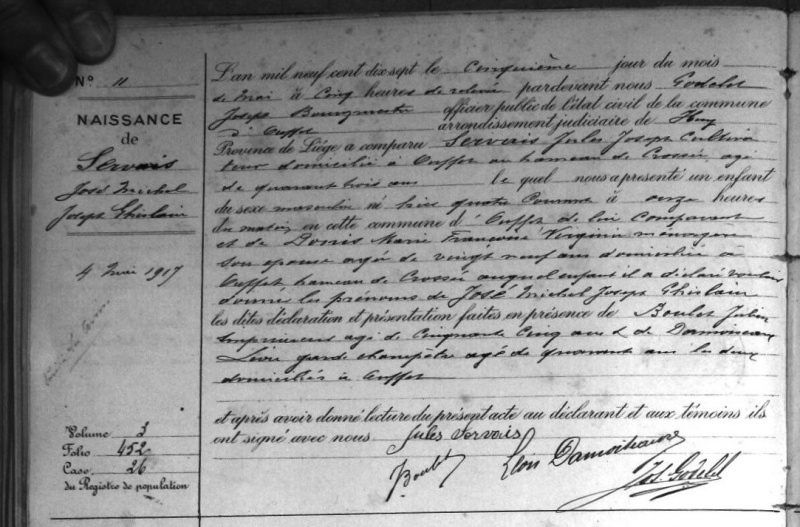 N° 11
NAISSANCE
de
Servais
José Michel
Joseph Ghislain
4 mai 1917
Volume 3
Folio 452
Case 26
du Registre de population
L'an mil neuf cent dix sept le cinquième jour du mois
de mai à cinq heures de relevée pardevant nous Godelet
Joseph Bourgmestre officier public de l'état civil de la commune
d'Ouffet arrondissement judiciaire de Huy
Province de Liége a comparu Servais Jules Joseph cultiva
teur domicilié à Ouffet au hameau de Crossée, agé
de quarante trois ans le quel nous a presenté un enfant
du sexe masculin né hier quatre courant à onze heures
du matin en cette commune d'Ouffet de lui comparant
et de Donis Marie Françoise Virginie ménagère
son épouse agée de vingt neuf ans domiciliée à
Ouffet hameau de Crossée auquel enfant il a déclaré vouloir
donner les prénoms de José Michel Joseph Ghislain
les dites déclaration et présentation faites en présence de Boulet Julien
agé de cinquante cinq ans & de Damoiseaux
garde champêtre agé de quarante ans les deux
domiciliés à Ouffet
et après avoir donné lecture du présent acte au déclarant et aux témoins ils
ont signé avec nous Jules Servais
Boulet Damoiseaux
Jos. Godelet